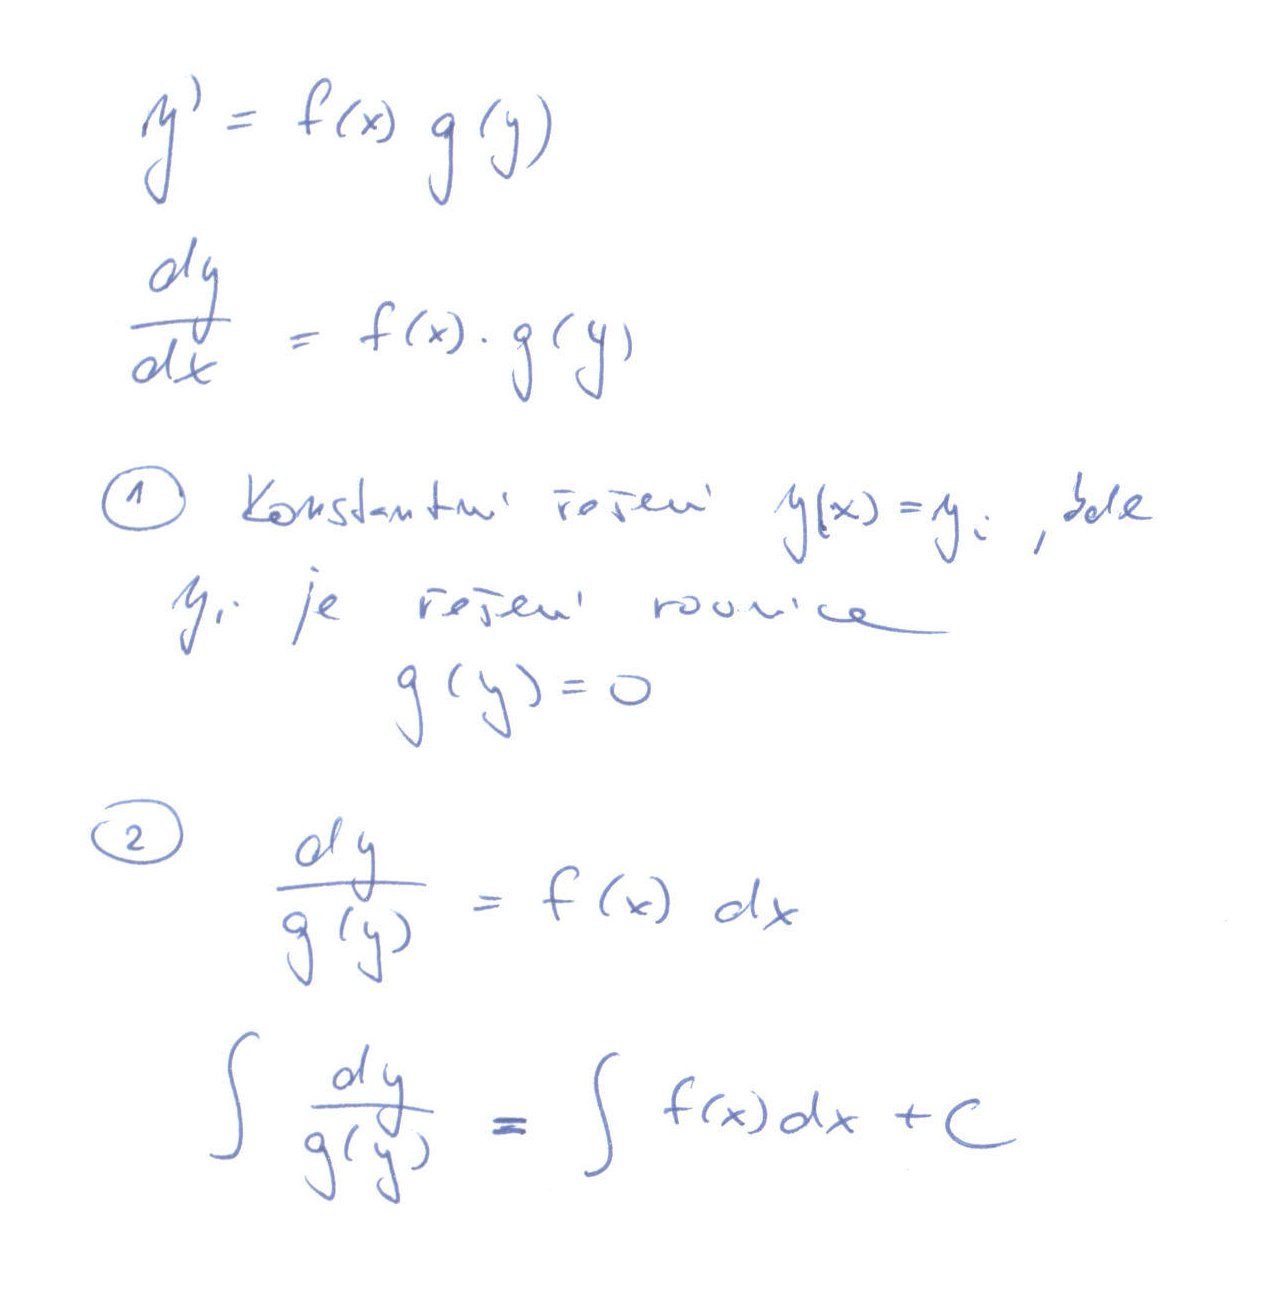 y' = f(x) g(y)
dy/dx = f(x) · g(y)
① Konstantní řešení y(x) = yᵢ , kde
yᵢ je řešení rovnice
g(y) = 0
② dy/g(y) = f(x) dx
∫ dy/g(y) = ∫ f(x) dx + C